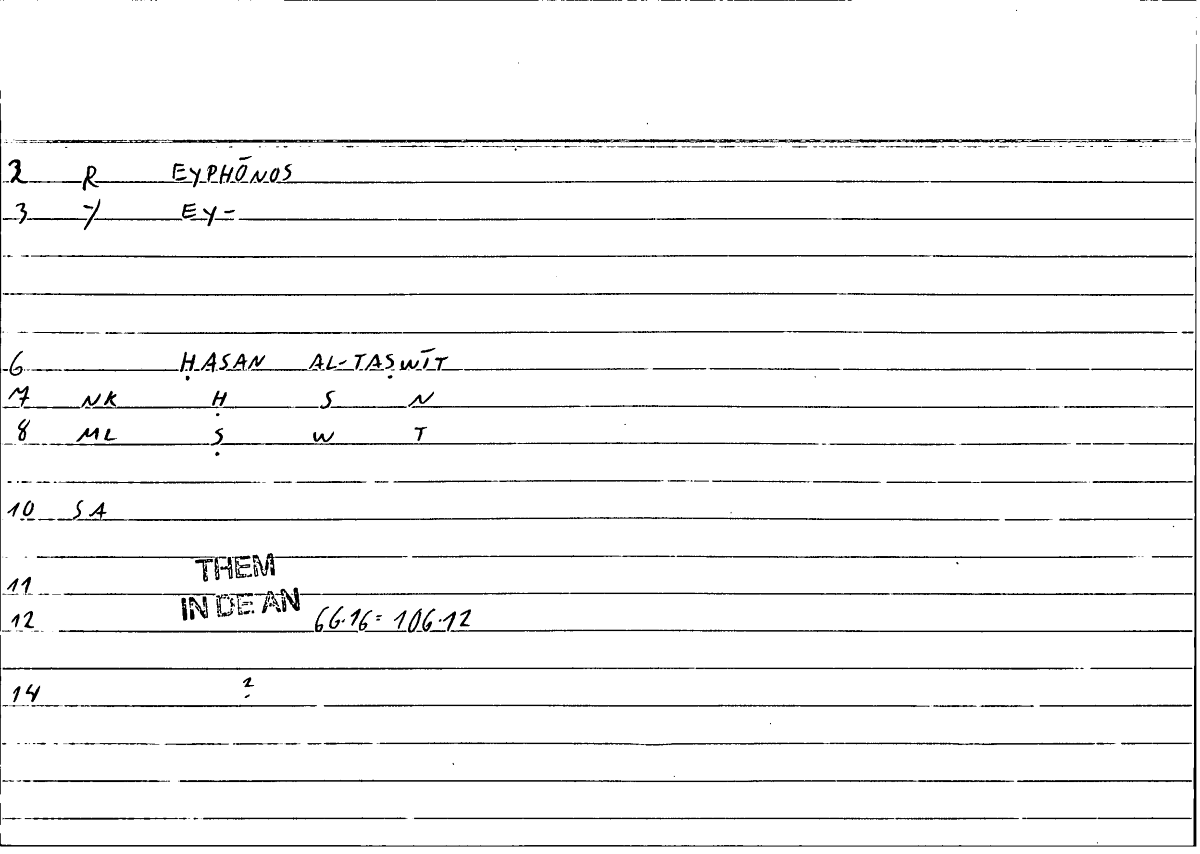 2 R EYPHŌNOS
3 -/ EY-
6 ḤASAN AL-TAṢWĪT
7 NK Ḥ S N
8 ML Ṣ W T
10 SA
THEM
11
IN DE AN
12 66.16 = 106.12
14 2